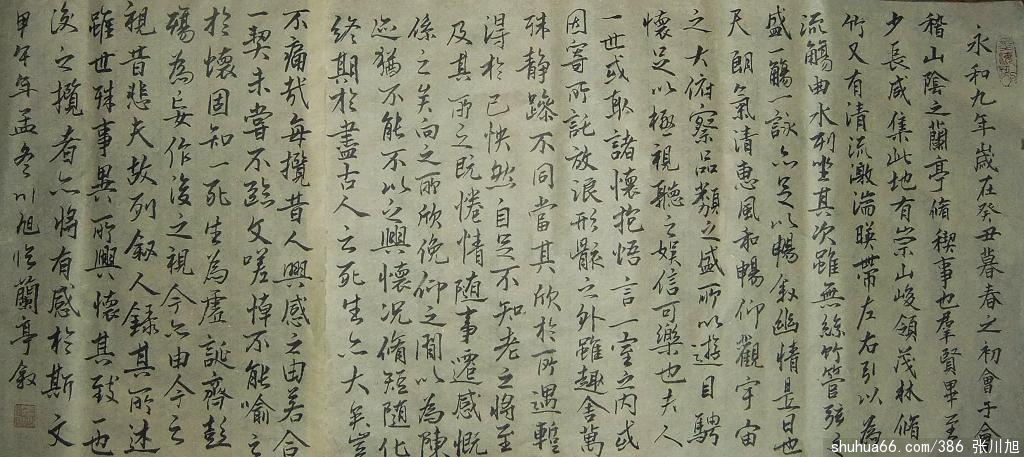 永和九年歲在癸丑暮春之初會于會
稽山陰之蘭亭脩稧事也羣賢畢至
少長咸集此地有崇山峻領茂林脩
竹又有清流激湍暎帶左右引以為
流觴曲水列坐其次雖無絲竹管弦之
盛一觴一詠亦足以暢敘幽情是日也
天朗氣清惠風和暢仰觀宇宙
之大俯察品類之盛所以遊目騁
懷足以極視聽之娛信可樂也夫人
一世或取諸懷抱悟言一室之內或
因寄所託放浪形骸之外雖趣舍萬
殊静躁不同當其欣於所遇蹔
得於己怏然自足不知老之將至
及其所之既惓情随事遷感慨
係之矣向之所欣俛仰之閒以為陳
迹猶不能不以之興懷況脩短随化
終期於盡古人云死生亦大矣豈
不痛哉每攬昔人興感之由若合
一契未嘗不臨文嗟悼不能喻之
於懷固知一死生為虛誕齊彭
殤為妄作後之視今亦由今之
視昔悲夫故列叙人録其所述
雖世殊事異所興懷其致一也
後之攬者亦將有感於斯文
甲午年孟冬川旭临蘭亭叙
shuhua66.com/386 张川旭